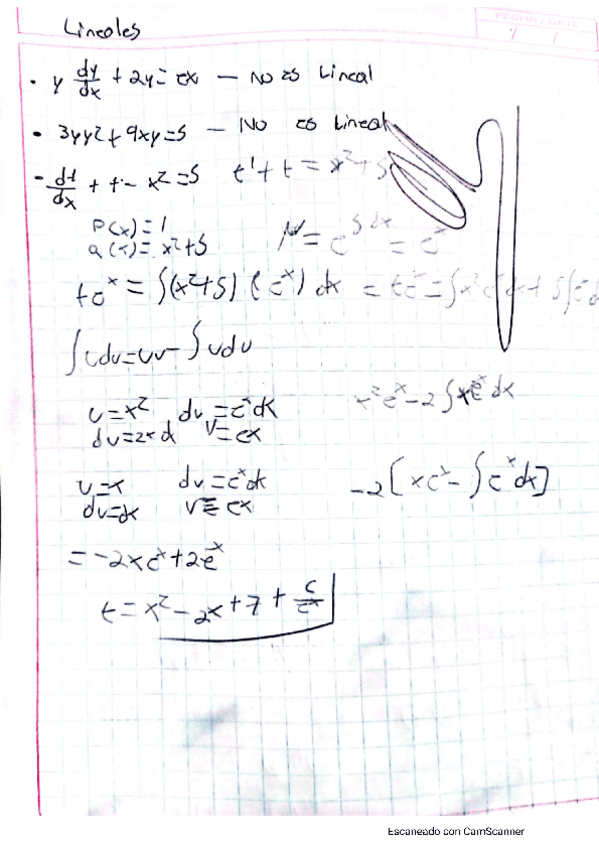 Lineales
• y dy/dx + 2y = ex — No es Lineal
• 3yy2 + 9xy = 5 — No es Lineal
- dt/dx + t - x² = 5 t' + t = x² + 5
P(x) = 1
Q(x) = x² + 5 μ = e^∫dx = e^x
te^x = ∫(x²+5)(e^x) dx = te^x = ∫x²e^x dx + 5∫e^x d
∫udv = uv - ∫vdu
u = x² dv = e^x dx x²e^x - 2∫xe^x dx
du = 2x d v = ex
u = x dv = e^x dx -2[xe^x - ∫e^x dx]
du = dx v = ex
= -2xe^x + 2e^x
t = x² - 2x + 7 + c/ex
Escaneado con CamScanner